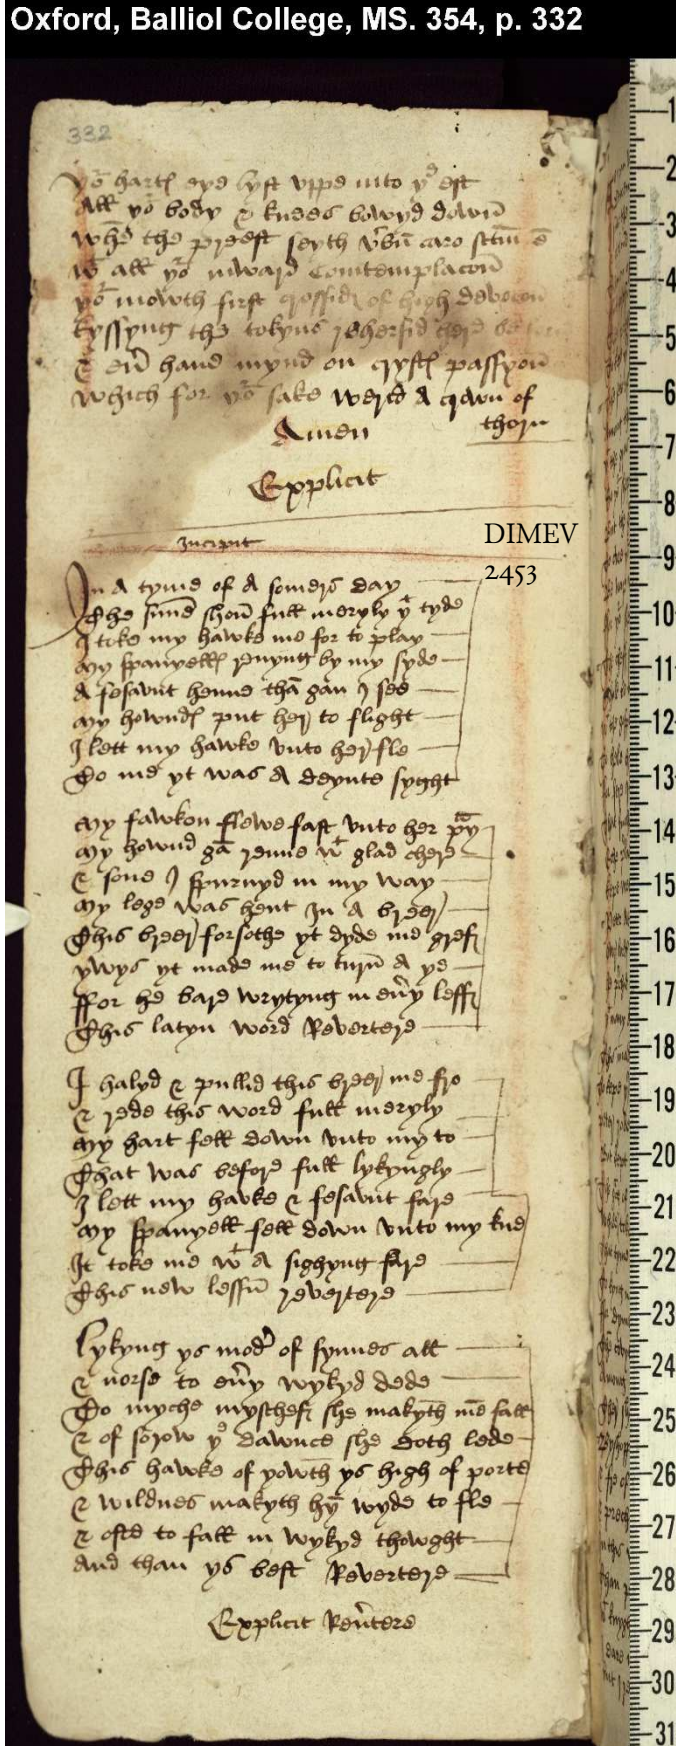 Oxford, Balliol College, MS. 354, p. 332
332
yor hartes eye lyft vppe into ye est
All yor body & knees bowyd down
Whe the preest seyth vbu caro
wt all yor inward Comtemplacon
yor mowth first crossid of high devocon
kyssyng the tokyns rehersid here
& eu haue mynd on crystes passyon
which for yor sake werid A crown of
thorn
Amen
Explicit
DIMEV
2453
Incipit
In A tyme of A somers day
The sune shon full meryly yt tyde
I toke my hawke me for to play
My spanyelles renyng by my syde
A fesavnt henne tha gan I see
My howndes put her to flight
I lett my hawke vnto her fle
To me yt was A deynte syght
My fawkon flewe fast vnto her pray
My hownd ga renne wt glad chere
& sone I spurnyd in my way
My lege was hent In A breer
This breer forsothe yt dyde me gref
ywys yt made me to turn A ye
ffor he bare wrytyng in euy leff
This latyn word Revertere
I halyd & pullid this breer me fro
& rede this word full meryly
My hart fell down vnto my to
That was before full lykyngly
I lett my havke & fesavnt fare
My spanyell fell down vnto my kne
It toke me wt A sighyng fare
This new lessun revertere
Lykyng ys moder of synnes all
& norse to euy wykyd dede
To myche myschef she makyth me fall
& of sorow ye dawnce she doth lede
This hawke of yowth ys high of porte
& wildnes makyth hy wyde to fle
& ofte to fall in wykyd thowght
And than ys best Revertere
Explicit Reutere
1
2
3
4
5
6
7
8
9
10
11
12
13
14
15
16
17
18
19
20
21
22
23
24
25
26
27
28
29
30
31